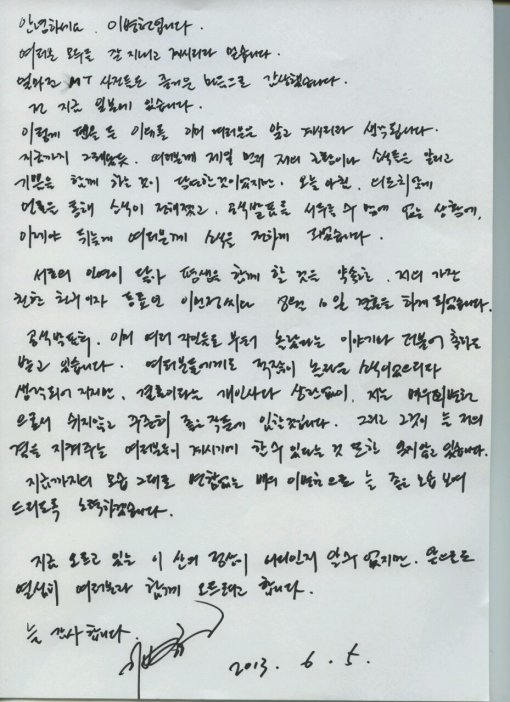 안녕하세요. 이병헌입니다.
여러분 모두들 잘 지내고 계시리라 믿습니다.
얼마전 MT 사진들도 즐거운 마음으로 감상했습니다.
전 지금 일본에 있습니다.
이렇게 펜을 든 이유를 이미 여러분은 알고 계시리라 생각됩니다.
지금까지 그래왔듯. 여러분께 제일 먼저 저의 고민이나 소식들을 알리고
기쁨을 함께 하는 것이 당연한 것이었지만. 오늘 아침. 의도치않게
언론을 통해 소식이 전해졌고, 공식발표를 서두를 수 밖에 없는 상황에,
이제야 뒤늦게 여러분께 소식을 전하게 되었습니다.
서로의 인연이 닿아 평생을 함께 할 것을 약속한, 저의 가장
친한 친구이자 동료인 이민정씨와 8월 10일 결혼을 하게 되었습니다.
공식발표후, 이미 여러 지인들로 부터 놀랐다는 이야기와 더불어 축하도
받고 있습니다. 여러분들에게도 적잖이 놀라운 소식이었으리라
생각되어 지지만, 결혼이라는 개인사와 상관없이, 저는 배우 이병헌
으로서 쉬지않고 꾸준히 좋은 작품에 임할것입니다. 그리고 그것이 늘 저의
곁을 지켜주는 여러분이 계시기에 할 수 있다는 것 또한 잊지않고 있습니다.
지금까지의 모습 그대로 변함없는 배우 이병헌으로 늘 좋은 모습 보여
드리도록 노력하겠습니다.
지금 오르고 있는 이 산의 정상이 어디인지 알 수 없지만, 앞으로도
열심히 여러분과 함께 오르려고 합니다.
늘 감사합니다.
2013. 6. 5.